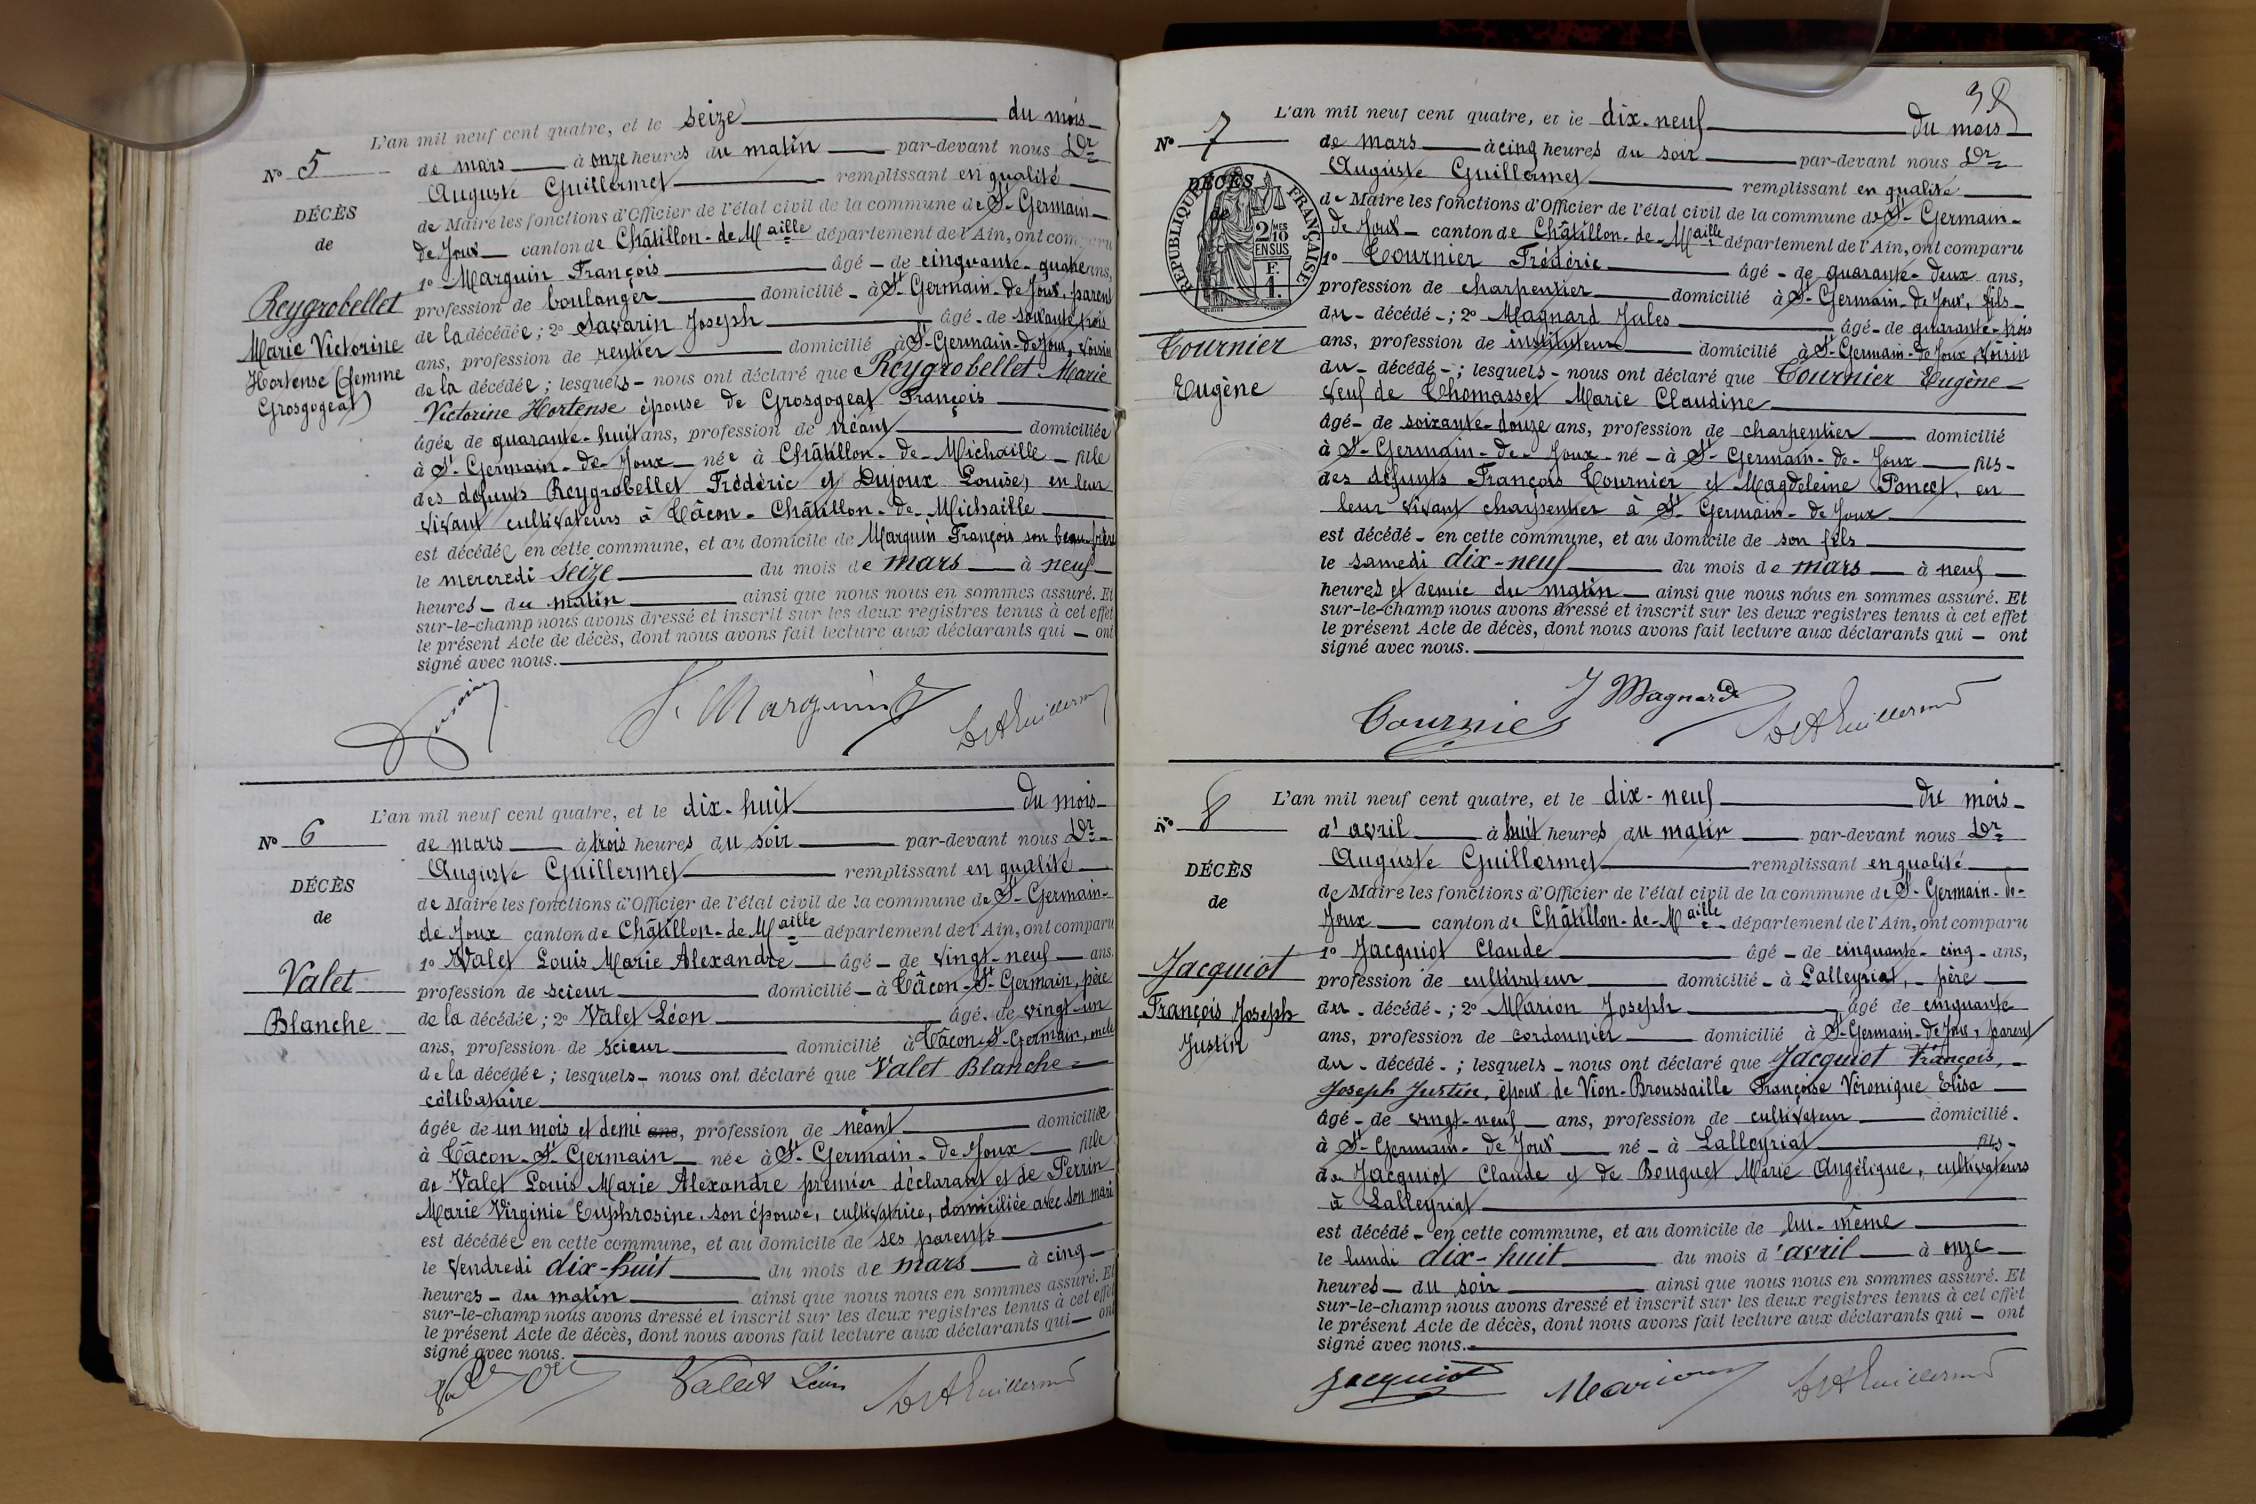 L'an mil neuf cent quatre, et le seize du mois
N° 5
de mars à onze heures du matin par-devant nous Dr
Auguste Guillermet remplissant en qualité
DÉCÈS
de Maire les fonctions d'Officier de l'état civil de la commune de St-Germain-
de
de Joux canton de Châtillon-de-Maille département de l'Ain, ont comparu
1° Marquin François âgé de cinquante-quatre ans,
Reygrobellet
profession de boulanger domicilié à St Germain-de-Joux, parent
Marie Victorine
de la décédée; 2° Savarin Joseph âgé de soixante trois
Hortense (femme
ans, profession de rentier domicilié à St-Germain-de-Joux, voisin
Grosgogeat)
de la décédée; lesquels nous ont déclaré que Reygrobellet Marie
Victorine Hortense épouse de Grosgogeat François
âgée de quarante-huit ans, profession de néant domiciliée
à St-Germain-de-Joux née à Châtillon-de-Michaille fille
des défunts Reygrobellet Frédéric et Dujoux Louise, en leur
vivant cultivateurs à Tâcon-Châtillon-de-Michaille
est décédée en cette commune, et au domicile de Marquin François son beau-frère
le mercredi seize du mois de mars à neuf
heures du matin ainsi que nous nous en sommes assuré. Et
sur-le-champ nous avons dressé et inscrit sur les deux registres tenus à cet effet
le présent Acte de décès, dont nous avons fait lecture aux déclarants qui ont
signé avec nous.
Savarin F. Marquin Dr A Guillermet
L'an mil neuf cent quatre, et le dix-huit du mois
N° 6
de mars à trois heures du soir par-devant nous Dr
Auguste Guillermet remplissant en qualité
DÉCÈS
de Maire les fonctions d'Officier de l'état civil de la commune de St-Germain-
de
de Joux canton de Châtillon-de-Maille département de l'Ain, ont comparu
1° Valet Louis Marie Alexandre âgé de vingt-neuf ans,
Valet
profession de scieur domicilié à Tâcon-St-Germain, père
Blanche
de la décédée; 2° Valet Léon âgé de vingt-un
ans, profession de scieur domicilié à Tâcon-St-Germain, oncle
de la décédée; lesquels nous ont déclaré que Valet Blanche
célibataire
âgée de un mois et demi ans, profession de néant domiciliée
à Tâcon-St-Germain née à St-Germain-de-Joux fille
de Valet Louis Marie Alexandre premier déclarant et de Perrin
Marie Virginie Euphrosine, son épouse, cultivatrice, domiciliée avec son mari
est décédée en cette commune, et au domicile de ses parents
le vendredi dix-huit du mois de mars à cinq
heures du matin ainsi que nous nous en sommes assuré. Et
sur-le-champ nous avons dressé et inscrit sur les deux registres tenus à cet effet
le présent Acte de décès, dont nous avons fait lecture aux déclarants qui ont
signé avec nous.
Valet Léon Dr A Guillermet
L'an mil neuf cent quatre, et le dix-neuf du mois
N° 7
de mars à cinq heures du soir par-devant nous Dr
Auguste Guillermet remplissant en qualité
DÉCÈS
de Maire les fonctions d'Officier de l'état civil de la commune de St-Germain-
de
RÉPUBLIQUE FRANÇAISE
2 MES
10
EN SUS
F.
1.
de Joux canton de Châtillon-de-Maille département de l'Ain, ont comparu
1° Tournier Frédéric âgé de quarante-deux ans,
profession de charpentier domicilié à St-Germain-de Joux, fils
du décédé; 2° Magnard Jules âgé de quarante-trois
Tournier
ans, profession de instituteur domicilié à St-Germain-de Joux, voisin
Eugène
du décédé; lesquels nous ont déclaré que Tournier Eugène
veuf de Thomasset Marie Claudine
âgé de soixante-douze ans, profession de charpentier domicilié
à St-Germain-de-Joux né à St-Germain-de-Joux fils
des défunts François Tournier et Magdeleine Poncet, en
leur vivant charpentier à St Germain-de Joux
est décédé en cette commune, et au domicile de son fils
le samedi dix-neuf du mois de mars à neuf
heures et demie du matin ainsi que nous nous en sommes assuré. Et
sur-le-champ nous avons dressé et inscrit sur les deux registres tenus à cet effet
le présent Acte de décès, dont nous avons fait lecture aux déclarants qui ont
signé avec nous.
Tournier J Magnard Dr A Guillermet
L'an mil neuf cent quatre, et le dix-neuf du mois
N° 8
d'avril à huit heures du matin par-devant nous Dr
Auguste Guillermet remplissant en qualité
DÉCÈS
de Maire les fonctions d'Officier de l'état civil de la commune de St-Germain-de-
de
Joux canton de Châtillon-de-Maille département de l'Ain, ont comparu
1° Jacquiot Claude âgé de cinquante-cinq ans,
Jacquiot
profession de cultivateur domicilié à Lalleyriat, père
François Joseph
du décédé; 2° Marion Joseph âgé de cinquante
Justin
ans, profession de cordonnier domicilié à St-Germain-de Joux, parent
du décédé; lesquels nous ont déclaré que Jacquiot François,
Joseph Justin, époux de Vion-Broussaille Françoise Véronique Elisa
âgé de vingt-neuf ans, profession de cultivateur domicilié
à St-Germain-de Joux né à Lalleyriat fils
de Jacquiot Claude et de Bouquet Marie Angélique, cultivateurs
à Lalleyriat
est décédé en cette commune, et au domicile de lui-même
le lundi dix-huit du mois d'avril à onze
heures du soir ainsi que nous nous en sommes assuré. Et
sur-le-champ nous avons dressé et inscrit sur les deux registres tenus à cet effet
le présent Acte de décès, dont nous avons fait lecture aux déclarants qui ont
signé avec nous.
Jacquiot Marion Dr A Guillermet